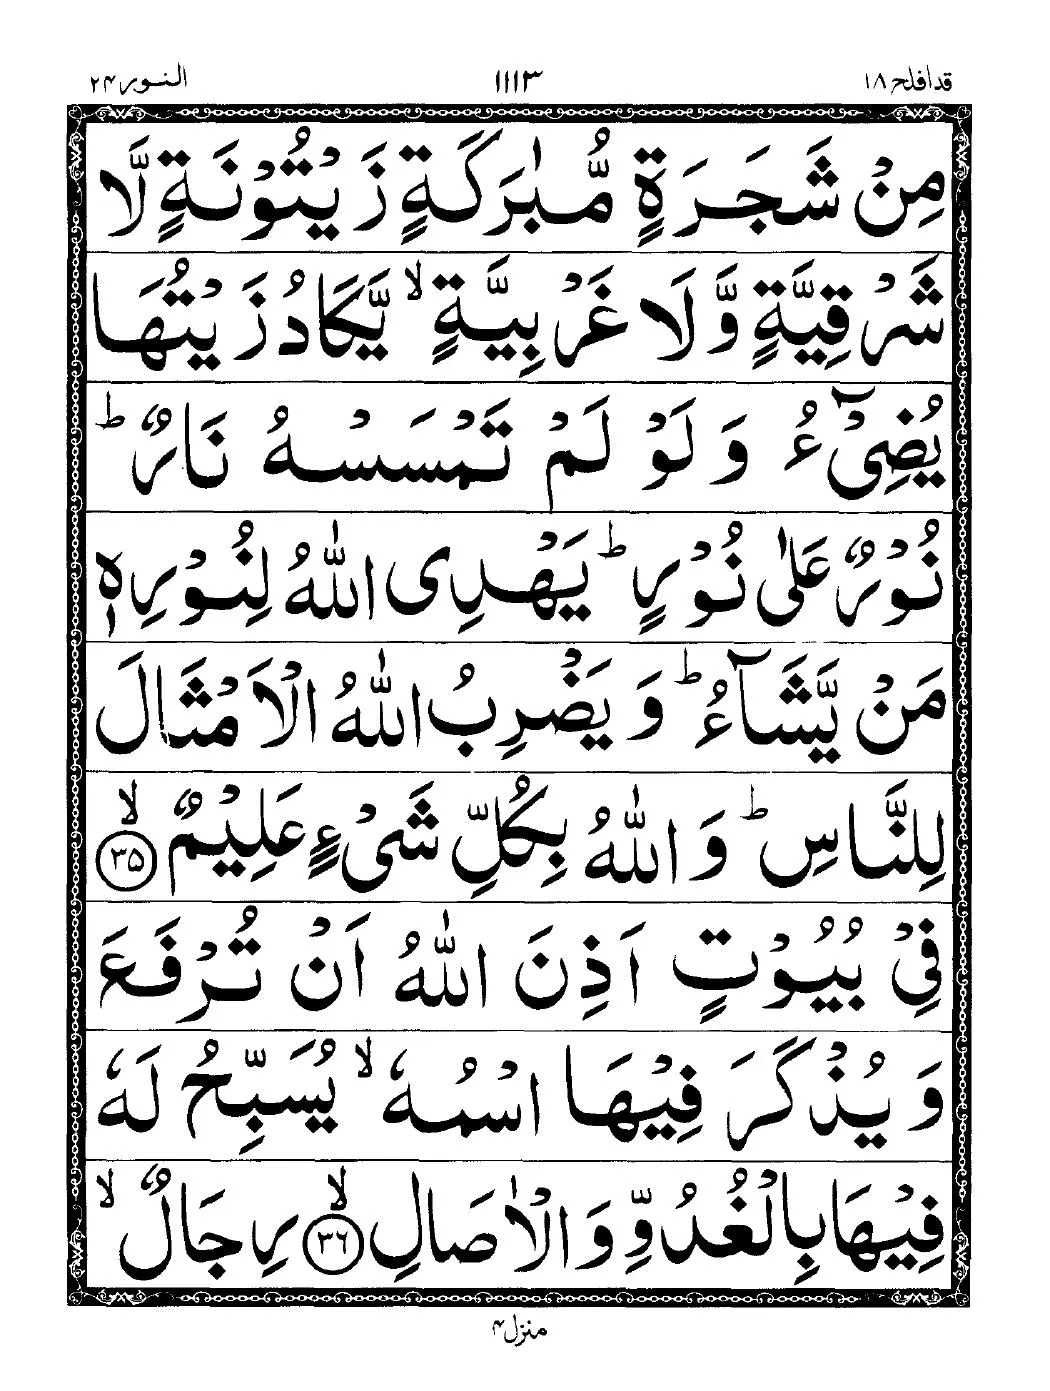 قد افلح ١٨ ١١١٣ النور ٢٤
مِنْ شَجَرَةٍ مُّبٰرَكَةٍ زَيْتُوْنَةٍ لَّا
شَرْقِيَّةٍ وَّلَا غَرْبِيَّةٍ ۙ يَّكَادُ زَيْتُهَا
يُضِیْٓءُ وَلَوْ لَمْ تَمْسَسْهُ نَارٌ ؕ
نُوْرٌ عَلٰى نُوْرٍ ؕ يَهْدِى اللّٰهُ لِنُوْرِهٖ
مَنْ يَّشَآءُ ؕ وَيَضْرِبُ اللّٰهُ الْاَمْثَالَ
لِلنَّاسِ ؕ وَاللّٰهُ بِكُلِّ شَیْءٍ عَلِيْمٌ ۙ ﴿٣٥﴾
فِیْ بُيُوْتٍ اَذِنَ اللّٰهُ اَنْ تُرْفَعَ
وَيُذْكَرَ فِيْهَا اسْمُهٗ ۙ يُسَبِّحُ لَهٗ
فِيْهَا بِالْغُدُوِّ وَالْاٰصَالِ ۙ ﴿٣٦﴾ رِجَالٌ ۙ
منزل ٤